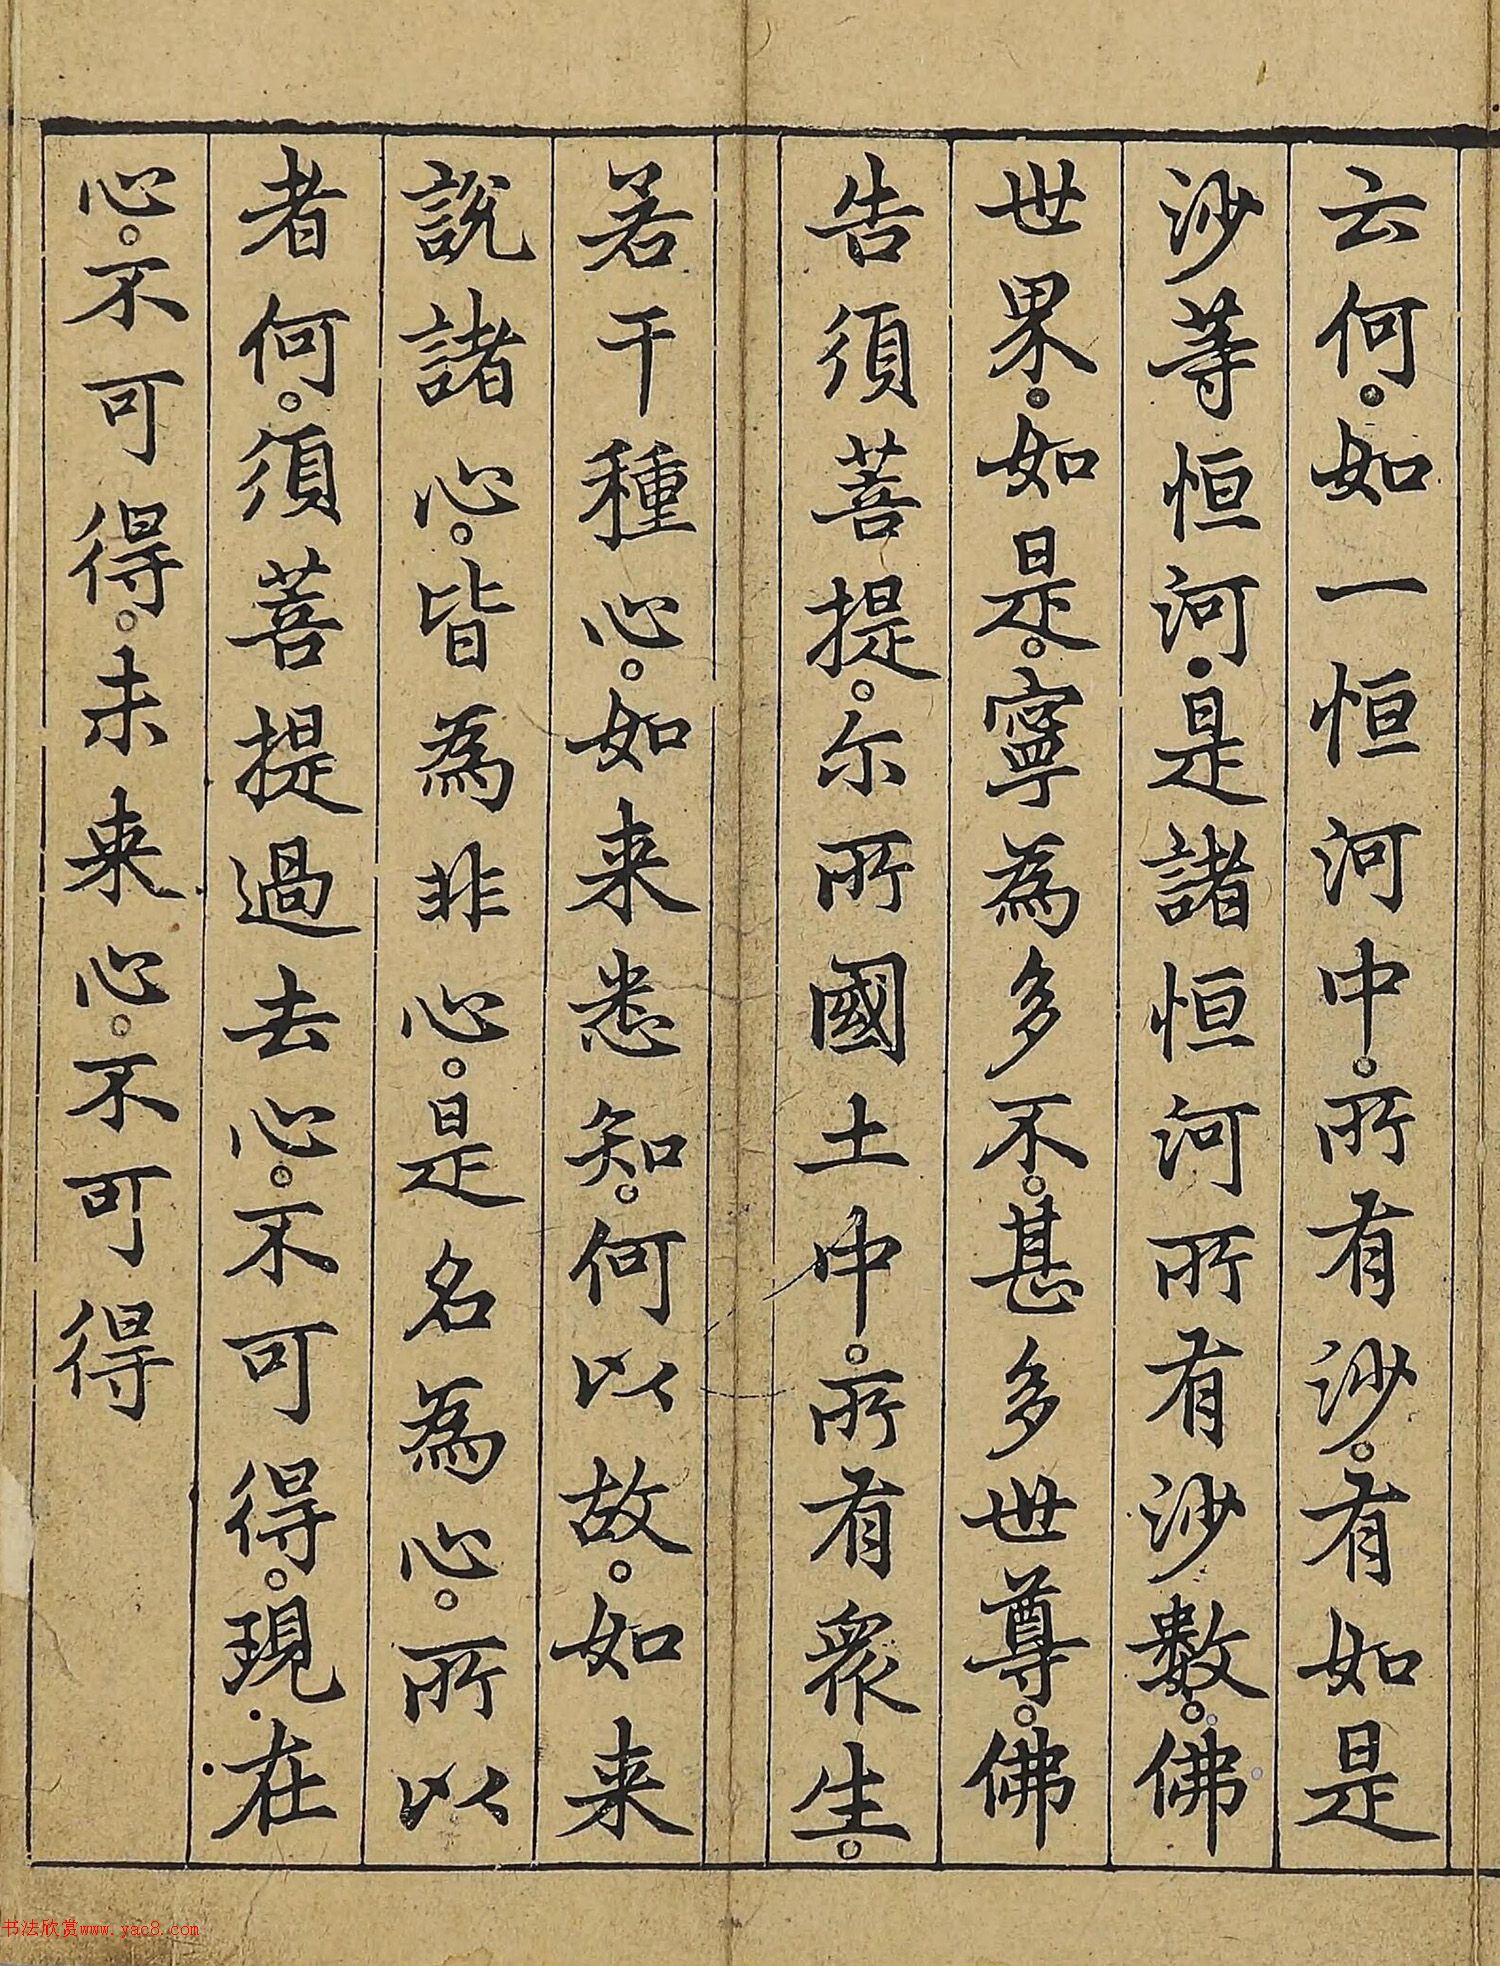 云何。如一恒河中。所有沙。有如是
沙等恒河。是諸恒河所有沙數。佛
世界。如是。寧為多不。甚多世尊。佛
告須菩提。尔所國土中。所有衆生。
若干種心。如来悉知。何以故。如来
說諸心。皆為非心。是名為心。所以
者何。須菩提過去心。不可得。現在
心。不可得。未来心。不可得
书法欣赏www.yac8.com